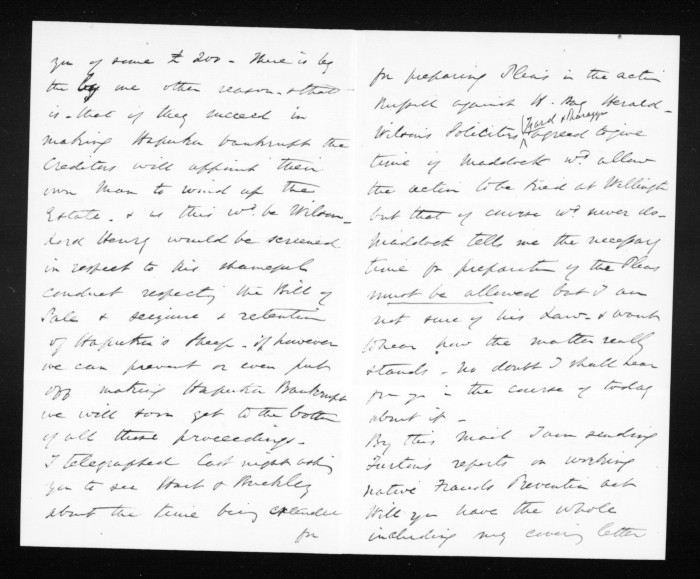 you of some £200 – There is by
the by one other reason – & that
is – that if they succeed in
making Hapuku bankrupt the
Creditors will appoint their
own Man to wind up the
Estate. & as this wd. be Wilson –
lord Henry would be screened
in respect to his shameful
conduct respecting the Bill of
Sale & seizure & retention
of Hapuku's Sheep – if however
we can prevent or even put
off making Hapuku Bankrupt
we will soon get to the bottom
of all these proceedings –
I telegraphed last night asking
you to see Hart & Buckley
about the time being extended
for
for preparing Pleas in the action
Russell against H. Bay Herald –
Wilson's Solicitors Izard & agreed to give
time if Maddock wd. allow
the action to be tried at Wellington
but that of course wd. never do –
Maddock tells me the necessary
time for preparation of the Pleas
must be allowed but I am
not sure of his Law – & want
to hear how the matter really
stands – No doubt I shall hear
from you in the course of today
about it –
By this Mail I am sending
Turton's reports on working
native Frauds Prevention act
Will you have the whole
including my covering letter